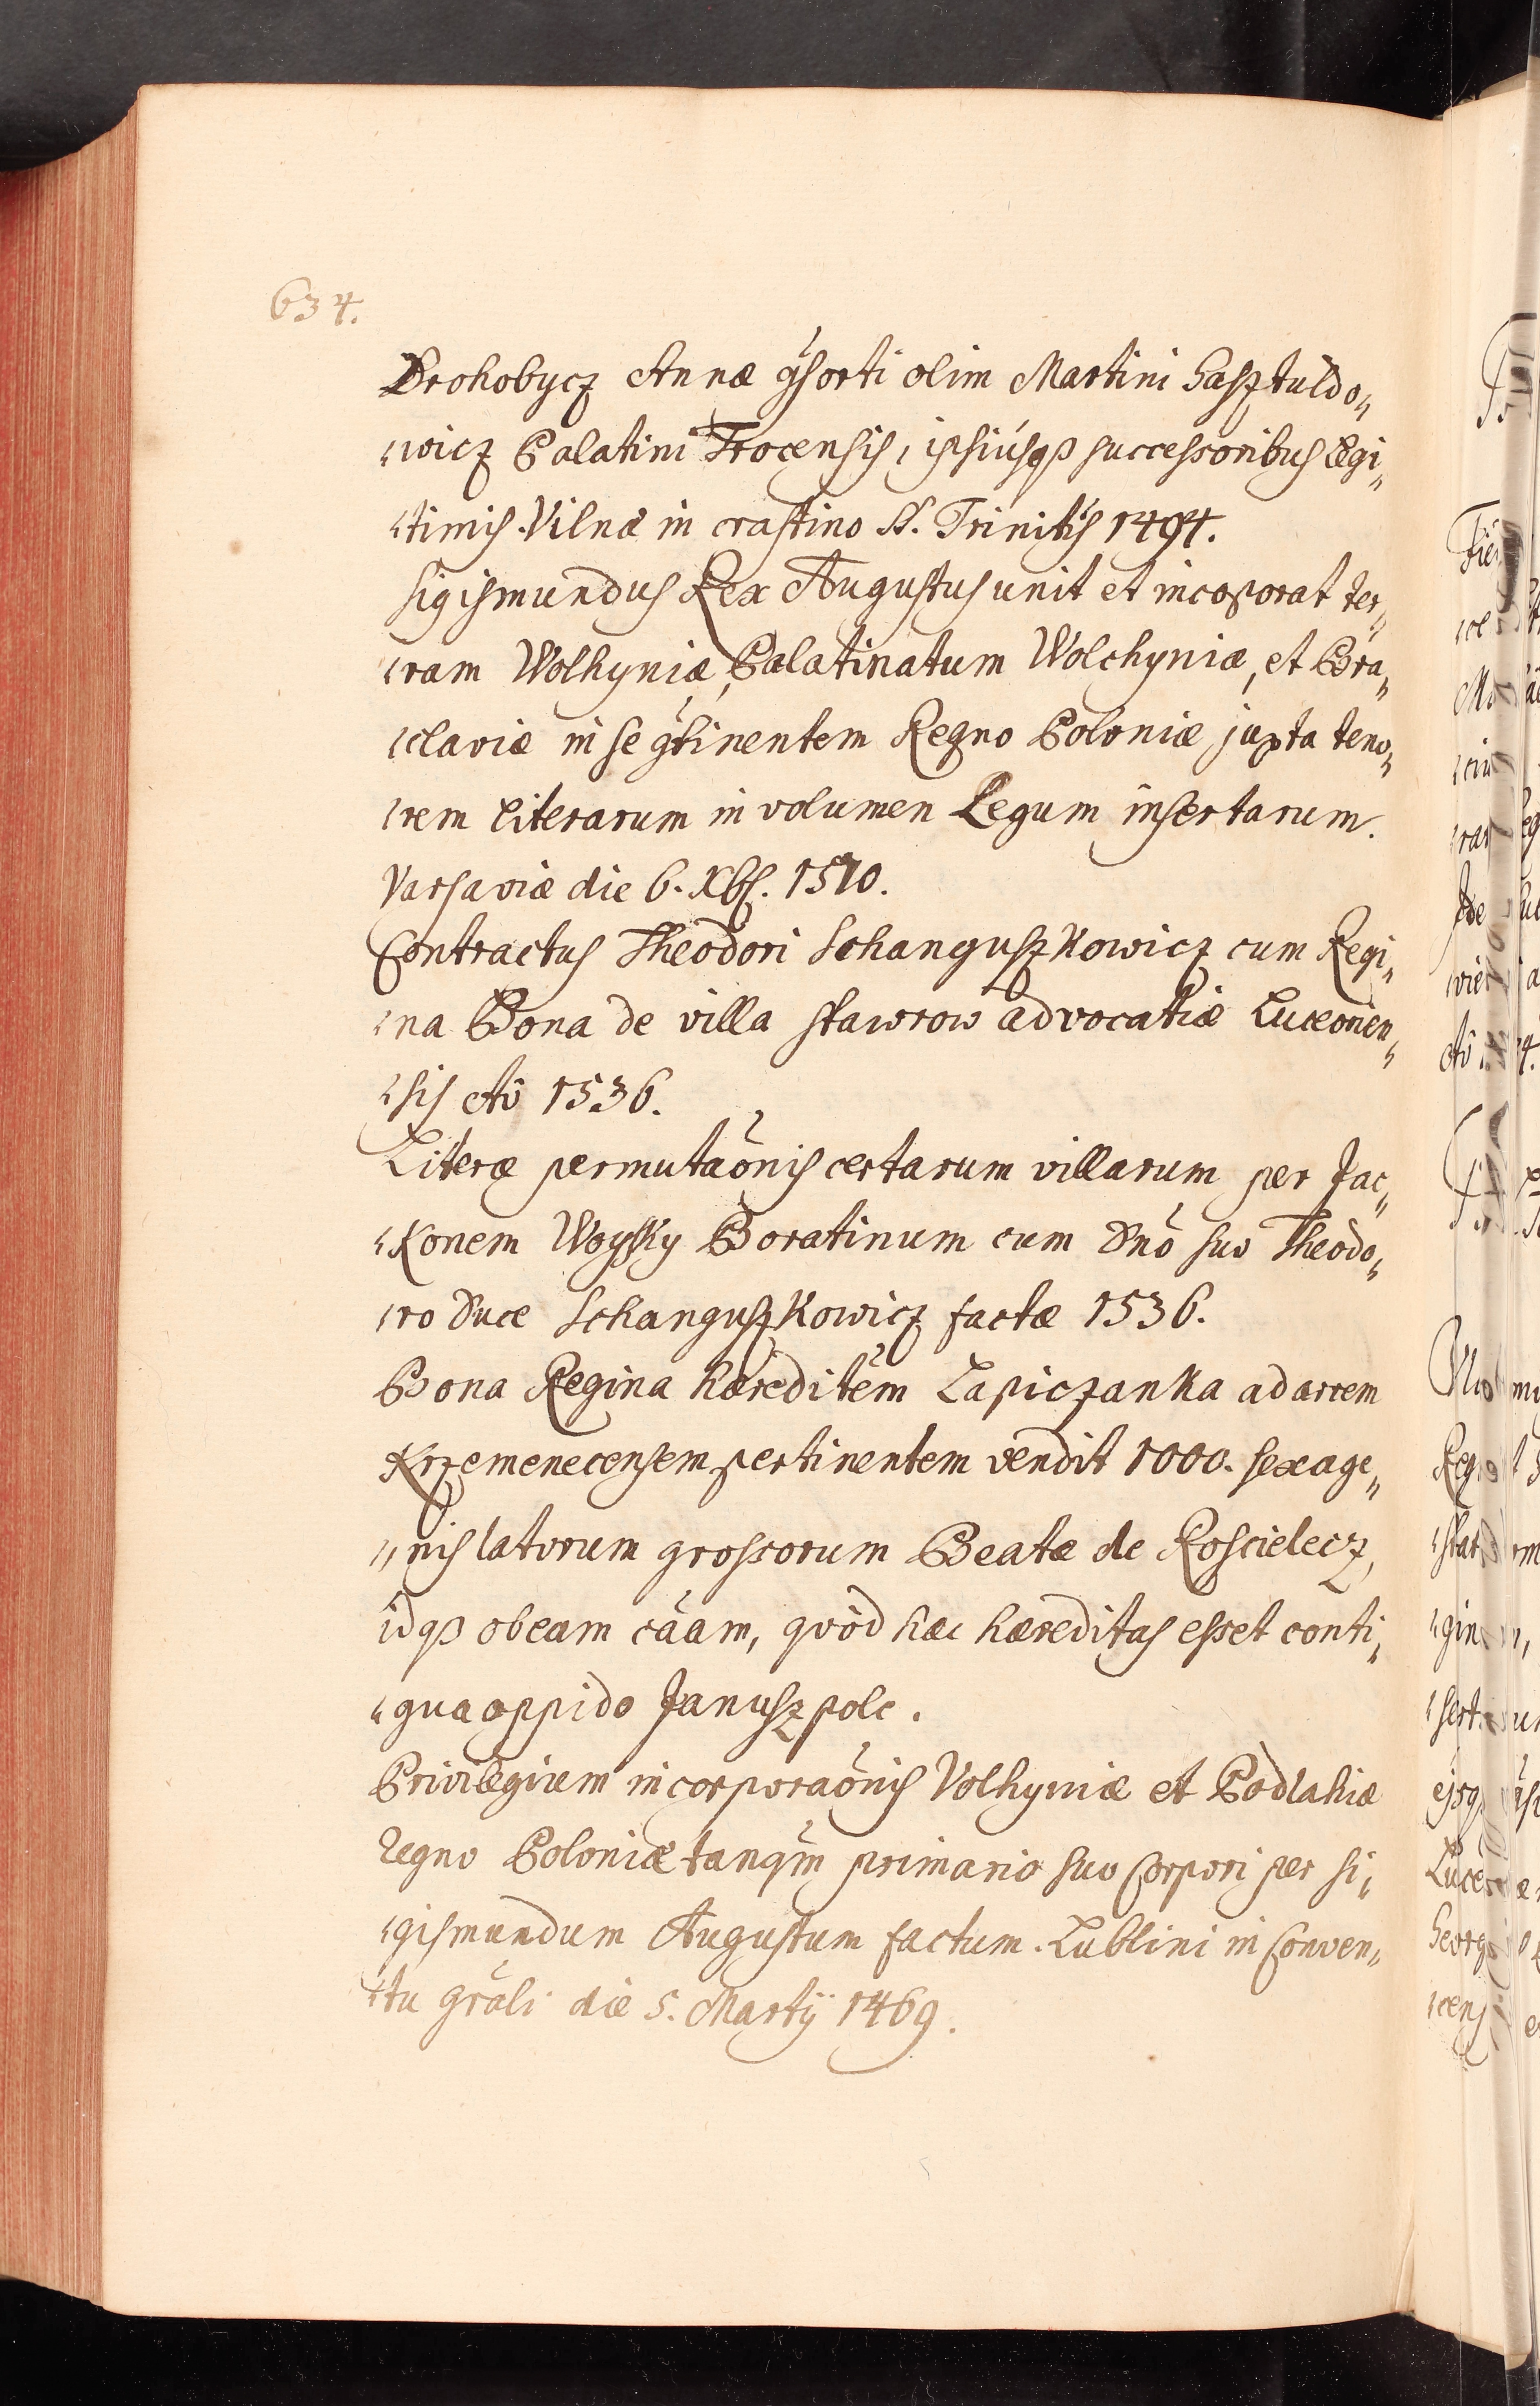 634.
Drohobycz Annæ ꝯsorti olim Martini Gasztuldo„
„wicz Palatini Trocensis, ipsiúsqꝫ successoribus legi„
„timis. Vilnæ in crastino S. Trinitis 1494.
Sigismundus Rex Augustus unit et incoporat ter„
„ram Wolhyniæ, Palatinatum Wolchyniæ, et Bra„
„claviæ in se ꝯtinentem Regno Poloniæ juxta teno„
„rem literarum in volumen Legum insertarum.
Varsaviæ die 6. Xbs. 1570.
Contractus Theodori Schanguszkowicz cum Regi„
„na Bona de villa Stawrow advocatiæ Luceorien„
„sis Aô 1536.
Literæ permutaõnis certarum villarum per Jac„
„konem Woysky Boratinum cum Dnõ suo Theodo„
„ro Duce Schanguszkowicz factæ 1536.
Bona Regina hæreditẽm Lapiczanka ad arcem
Krzemenecensem pertinentem vendit 1000. sexage„
„nis latorum grossorum Beatæ de Koscielecz,
idqꝫ ob eam cãam, quòd hæc hæreditas esset conti„
„gua oppido Januszpole.
Privilegium incorporaõnis Volhyniæ et Podlahiæ
Regno Poloniæ tanqm̃ primario suo Corpori per Si„
„gismundum Augustum factum. Lublini in Conven„
„tu grãli die 5. Martÿ 1469.